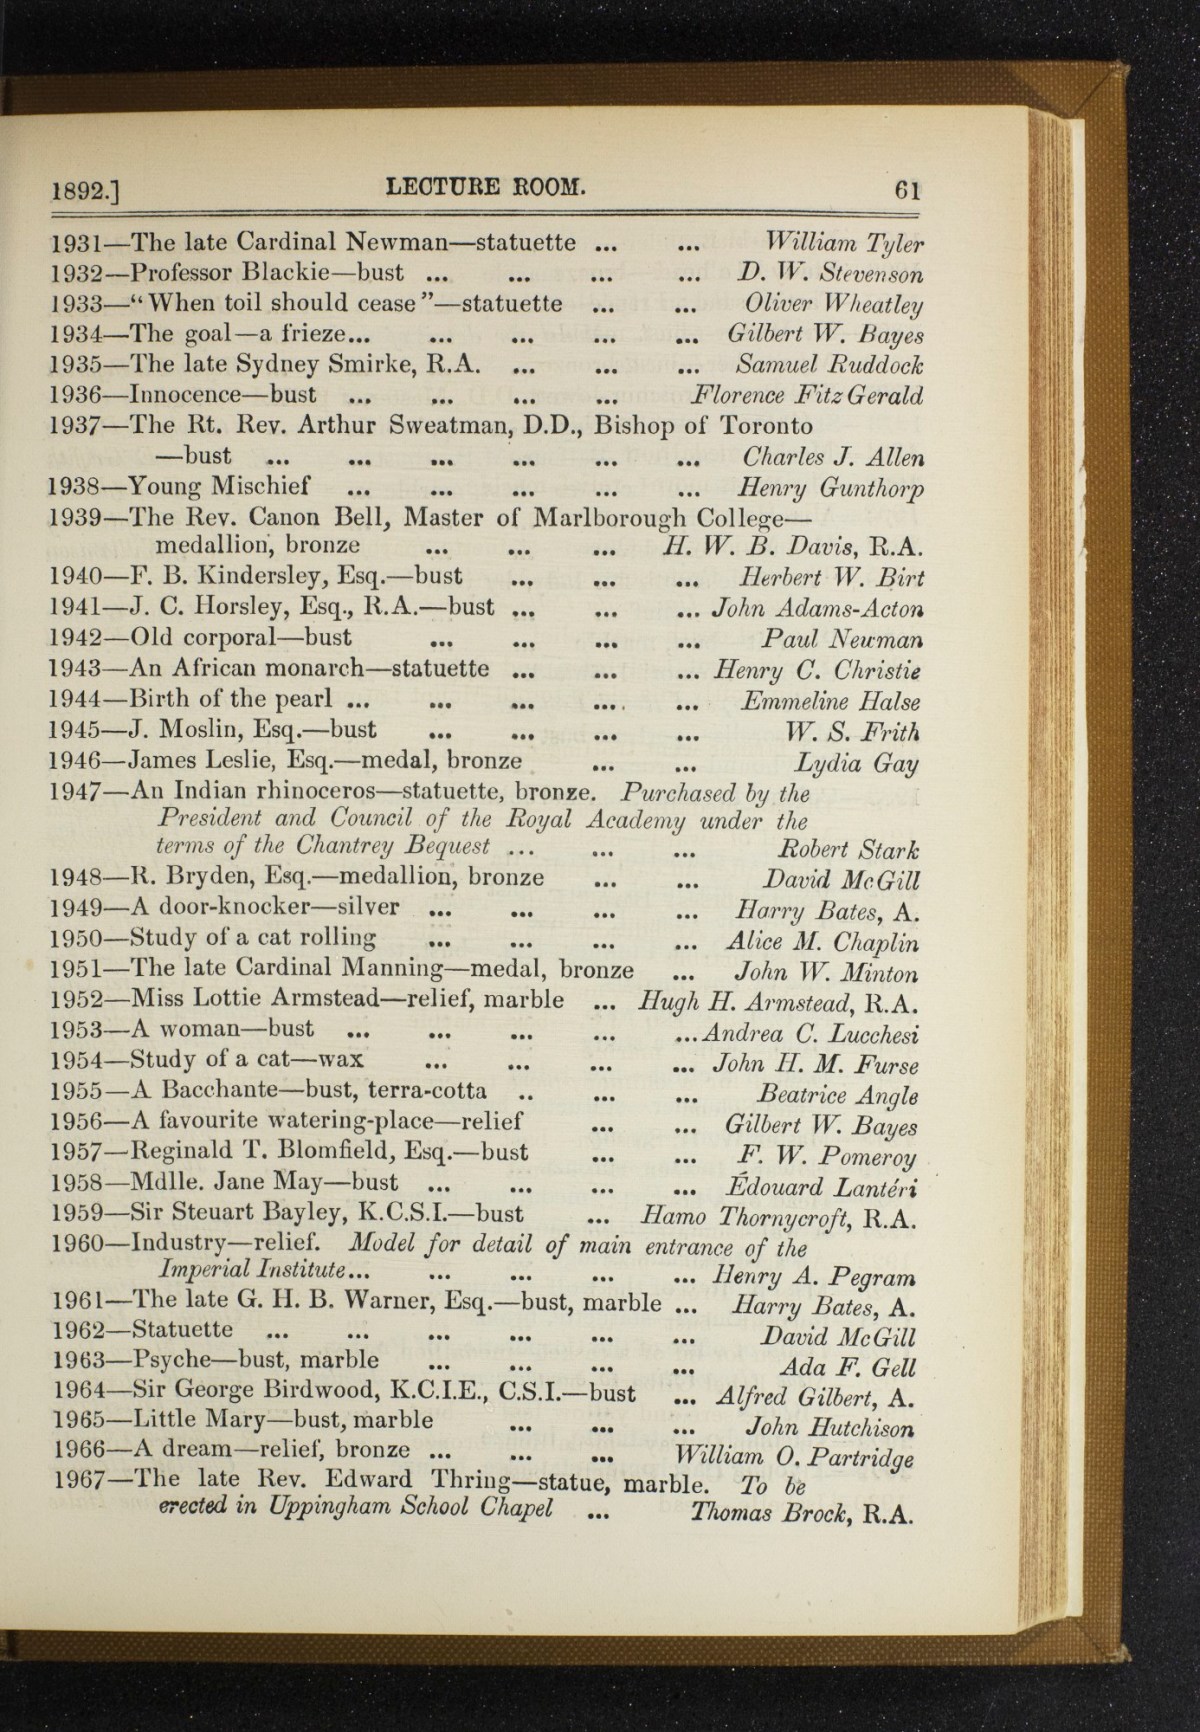 1892.] LECTURE ROOM. 61
1931—The late Cardinal Newman—statuette ... ... William Tyler
1932—Professor Blackie—bust ... ... ... ... D. W. Stevenson
1933—“When toil should cease”—statuette ... ... Oliver Wheatley
1934—The goal—a frieze... ... ... ... ... Gilbert W. Bayes
1935—The late Sydney Smirke, R.A. ... ... ... Samuel Ruddock
1936—Innocence—bust ... ... ... ... Florence FitzGerald
1937—The Rt. Rev. Arthur Sweatman, D.D., Bishop of Toronto
—bust ... ... ... ... ... ... Charles J. Allen
1938—Young Mischief ... ... ... ... ... Henry Gunthorp
1939—The Rev. Canon Bell, Master of Marlborough College—
medallion, bronze ... ... ... H. W. B. Davis, R.A.
1940—F. B. Kindersley, Esq.—bust ... ... ... Herbert W. Birt
1941—J. C. Horsley, Esq., R.A.—bust ... ... ... John Adams-Acton
1942—Old corporal—bust ... ... ... ... Paul Newman
1943—An African monarch—statuette ... ... ... Henry C. Christie
1944—Birth of the pearl ... ... ... ... ... Emmeline Halse
1945—J. Moslin, Esq.—bust ... ... ... ... W. S. Frith
1946—James Leslie, Esq.—medal, bronze ... ... Lydia Gay
1947—An Indian rhinoceros—statuette, bronze. Purchased by the
President and Council of the Royal Academy under the
terms of the Chantrey Bequest ... ... ... Robert Stark
1948—R. Bryden, Esq.—medallion, bronze ... ... David McGill
1949—A door-knocker—silver ... ... ... ... Harry Bates, A.
1950—Study of a cat rolling ... ... ... ... Alice M. Chaplin
1951—The late Cardinal Manning—medal, bronze ... John W. Minton
1952—Miss Lottie Armstead—relief, marble ... Hugh H. Armstead, R.A.
1953—A woman—bust ... ... ... ... ... Andrea C. Lucchesi
1954—Study of a cat—wax ... ... ... ... John H. M. Furse
1955—A Bacchante—bust, terra-cotta .. ... ... Beatrice Angle
1956—A favourite watering-place—relief ... ... Gilbert W. Bayes
1957—Reginald T. Blomfield, Esq.—bust ... ... F. W. Pomeroy
1958—Mdlle. Jane May—bust ... ... ... ... Édouard Lantéri
1959—Sir Steuart Bayley, K.C.S.I.—bust ... Hamo Thornycroft, R.A.
1960—Industry—relief. Model for detail of main entrance of the
Imperial Institute... ... ... ... ... Henry A. Pegram
1961—The late G. H. B. Warner, Esq.—bust, marble ... Harry Bates, A.
1962—Statuette ... ... ... ... ... ... David McGill
1963—Psyche—bust, marble ... ... ... ... Ada F. Gell
1964—Sir George Birdwood, K.C.I.E., C.S.I.—bust ... Alfred Gilbert, A.
1965—Little Mary—bust, marble ... ... ... John Hutchison
1966—A dream—relief, bronze ... ... ... William O. Partridge
1967—The late Rev. Edward Thring—statue, marble. To be
erected in Uppingham School Chapel ... Thomas Brock, R.A.